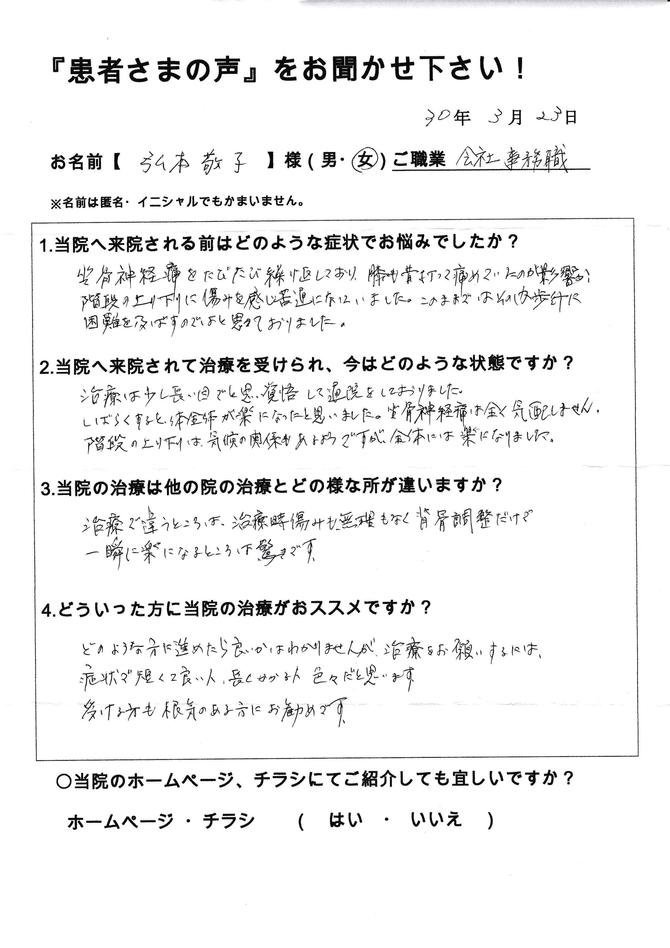 『患者さまの声』をお聞かせ下さい！
30年 3月 23日
お名前【 弘本 敬子 】様（男・女）ご職業 会社事務職
※名前は匿名・イニシャルでもかまいません。
1.当院へ来院される前はどのような症状でお悩みでしたか？
坐骨神経痛をたびたび繰り返しており、膝も昔打って痛めていたのが影響か
階段の上り下りに傷みを感じ苦通になにいました。このままではその内歩行に
困難を及ぼすのではと思っておりました。
2.当院へ来院されて治療を受けられ、今はどのような状態ですか？
治療は少し長い目でと思い覚悟して通院をしておりました。
しばらくすると、体全体が楽になったと思いました。坐骨神経痛は全く気配しません。
階段の上り下りは、気候の関係もあるようですが、全体には楽になりました。
3.当院の治療は他の院の治療とどの様な所が違いますか？
治療で違うところは、治療時傷みも無理もなく背骨調整だけで
一瞬に楽になるところは驚きです
4.どういった方に当院の治療がおススメですか？
どのような方に進めたら良いかはわかりませんが、治療をお願いするには、
症状で短くて良い人、長くかかる人 色々だと思います
受ける方も根気のある方にお勧めです
〇当院のホームページ、チラシにてご紹介しても宜しいですか？
ホームページ・チラシ （ はい ・ いいえ ）